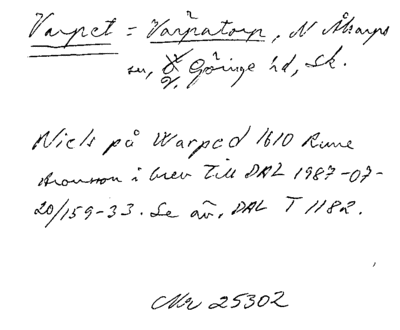 Varpet = Varpatorp, N Åkarps
sn, V. Göinge hd, Sk.
Niels på Warped 1610 Rune
Aronsson i brev till DAL 1987-07-
20/159-33. Se äv. DAL T 1182.
Nr 25302